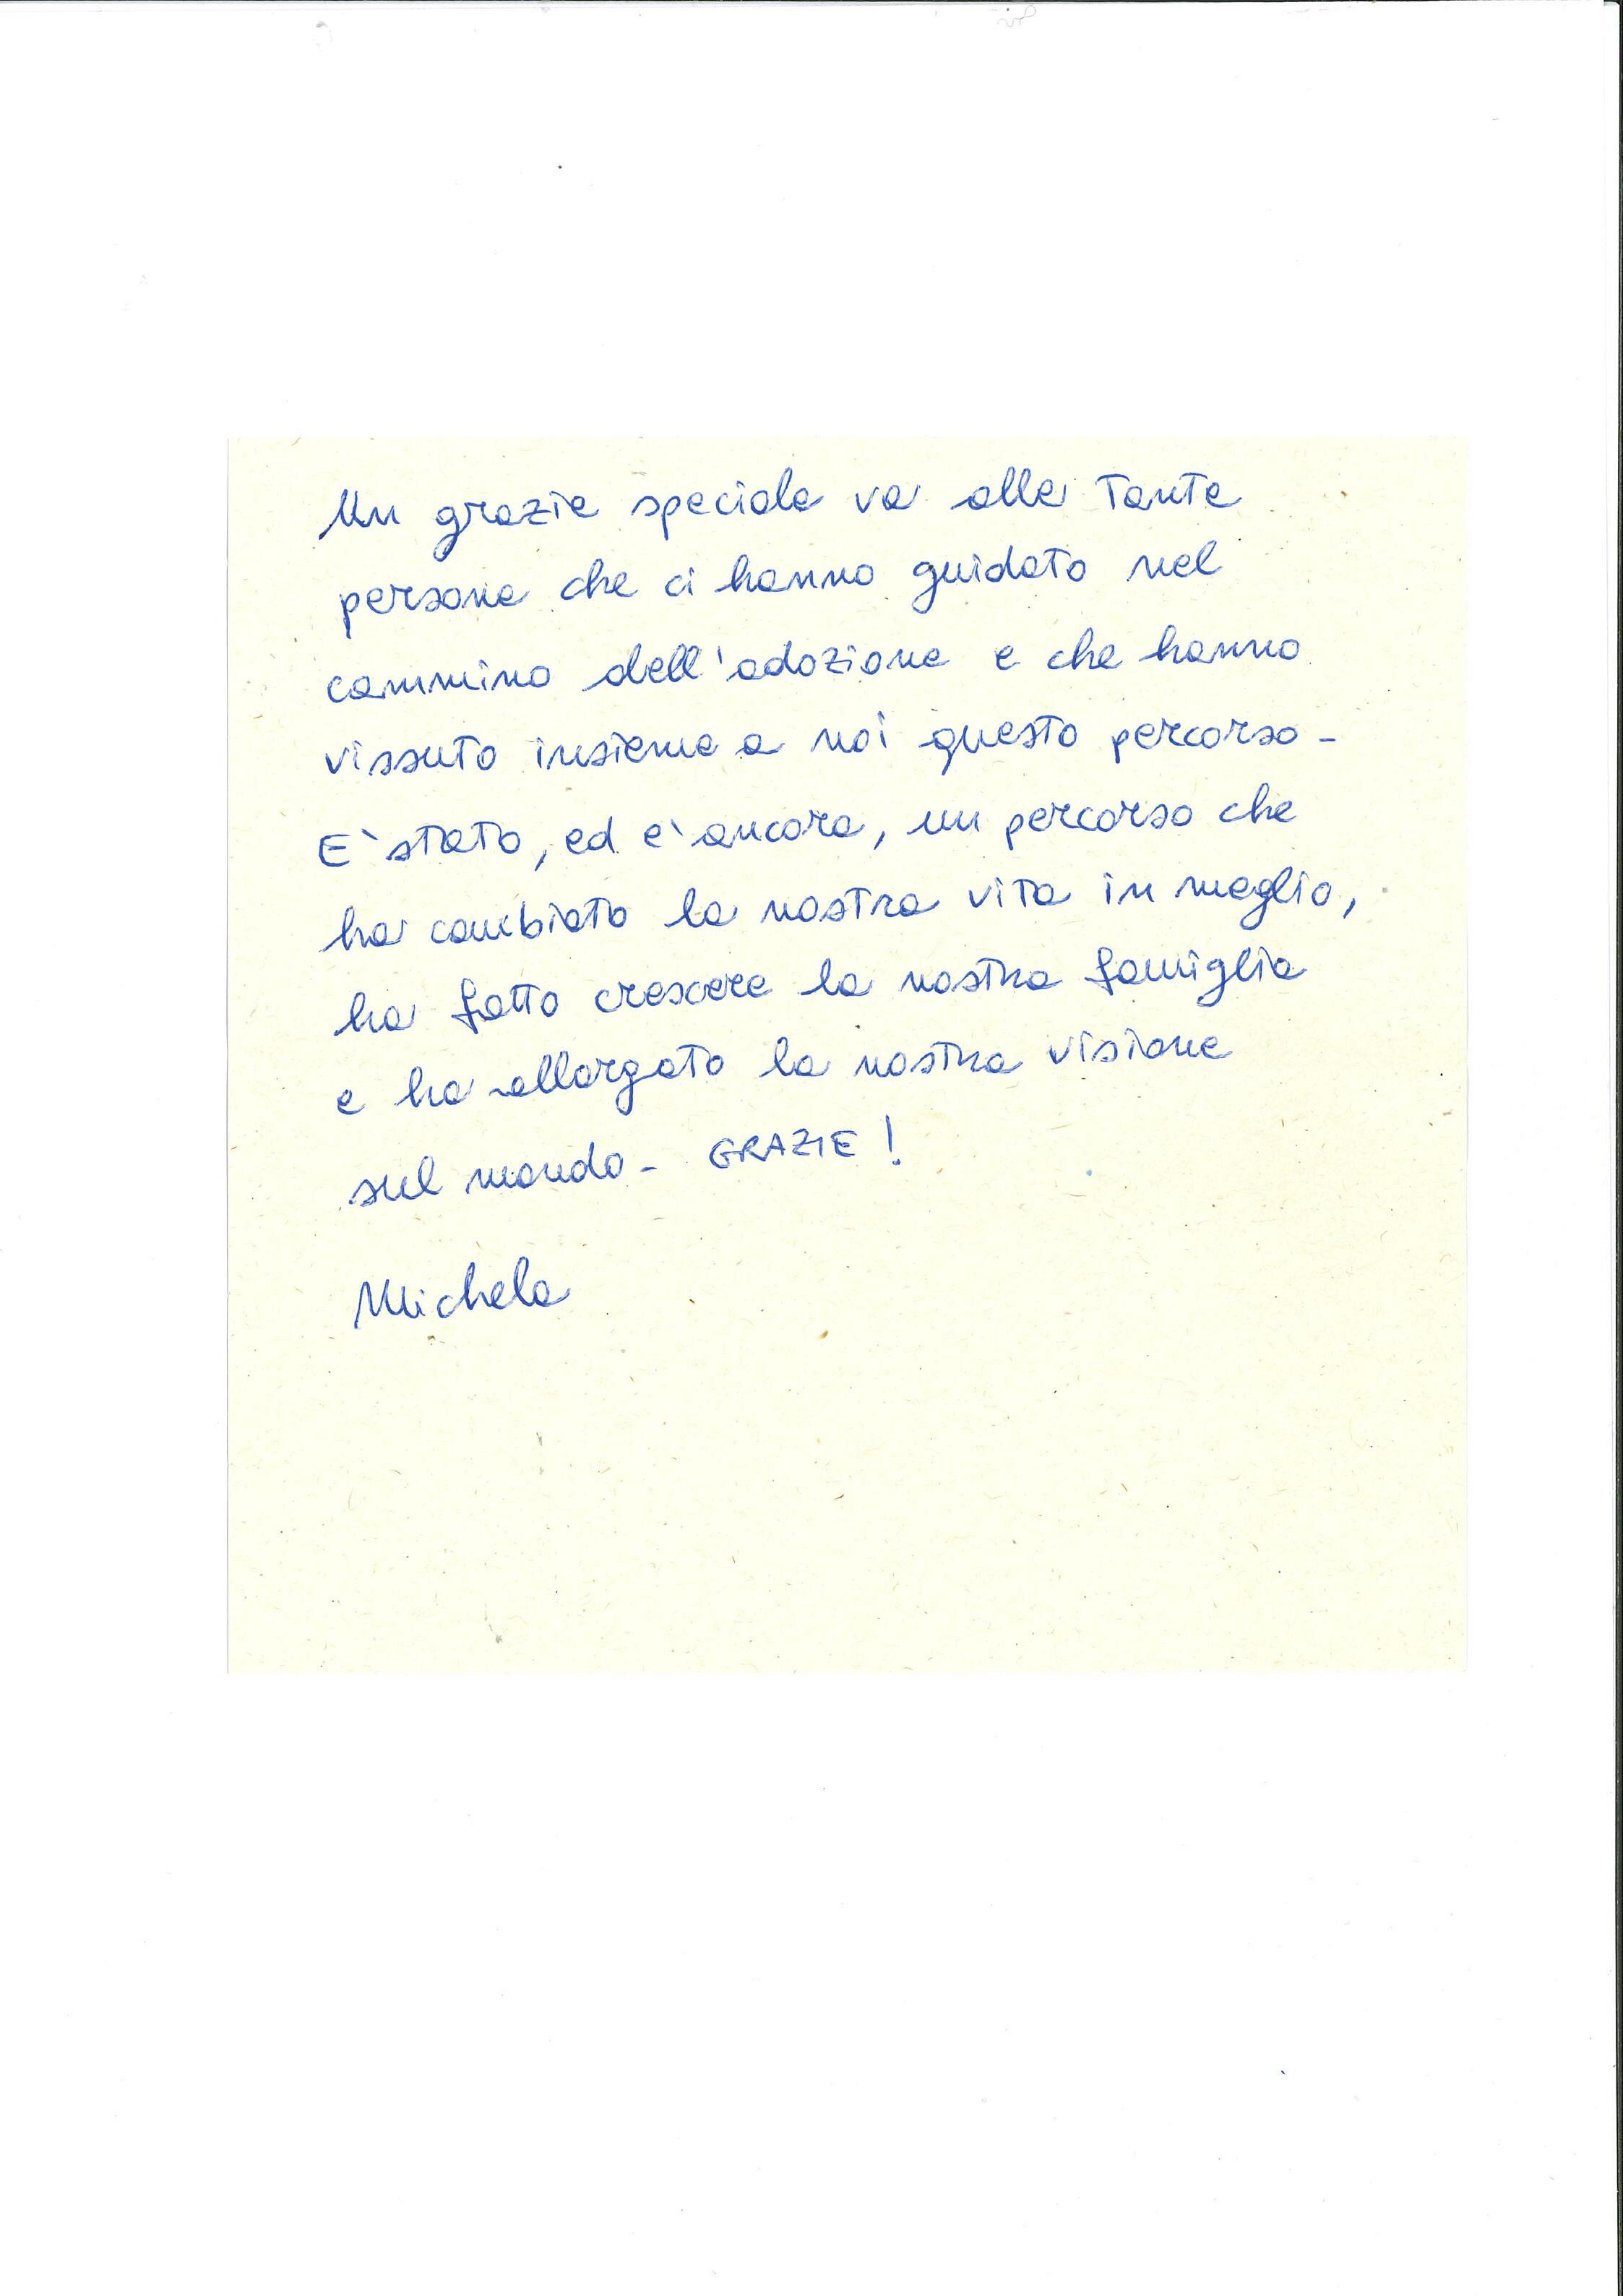 Un grazie speciale va alle tante
persone che ci hanno guidato nel
cammino dell'adozione e che hanno
vissuto insieme a noi questo percorso -
E' stato, ed e' ancora, un percorso che
ha cambiato la nostra vita in meglio,
ha fatto crescere la nostra famiglia
e ha allargato la nostra visione
sul mondo - GRAZIE !
Michela